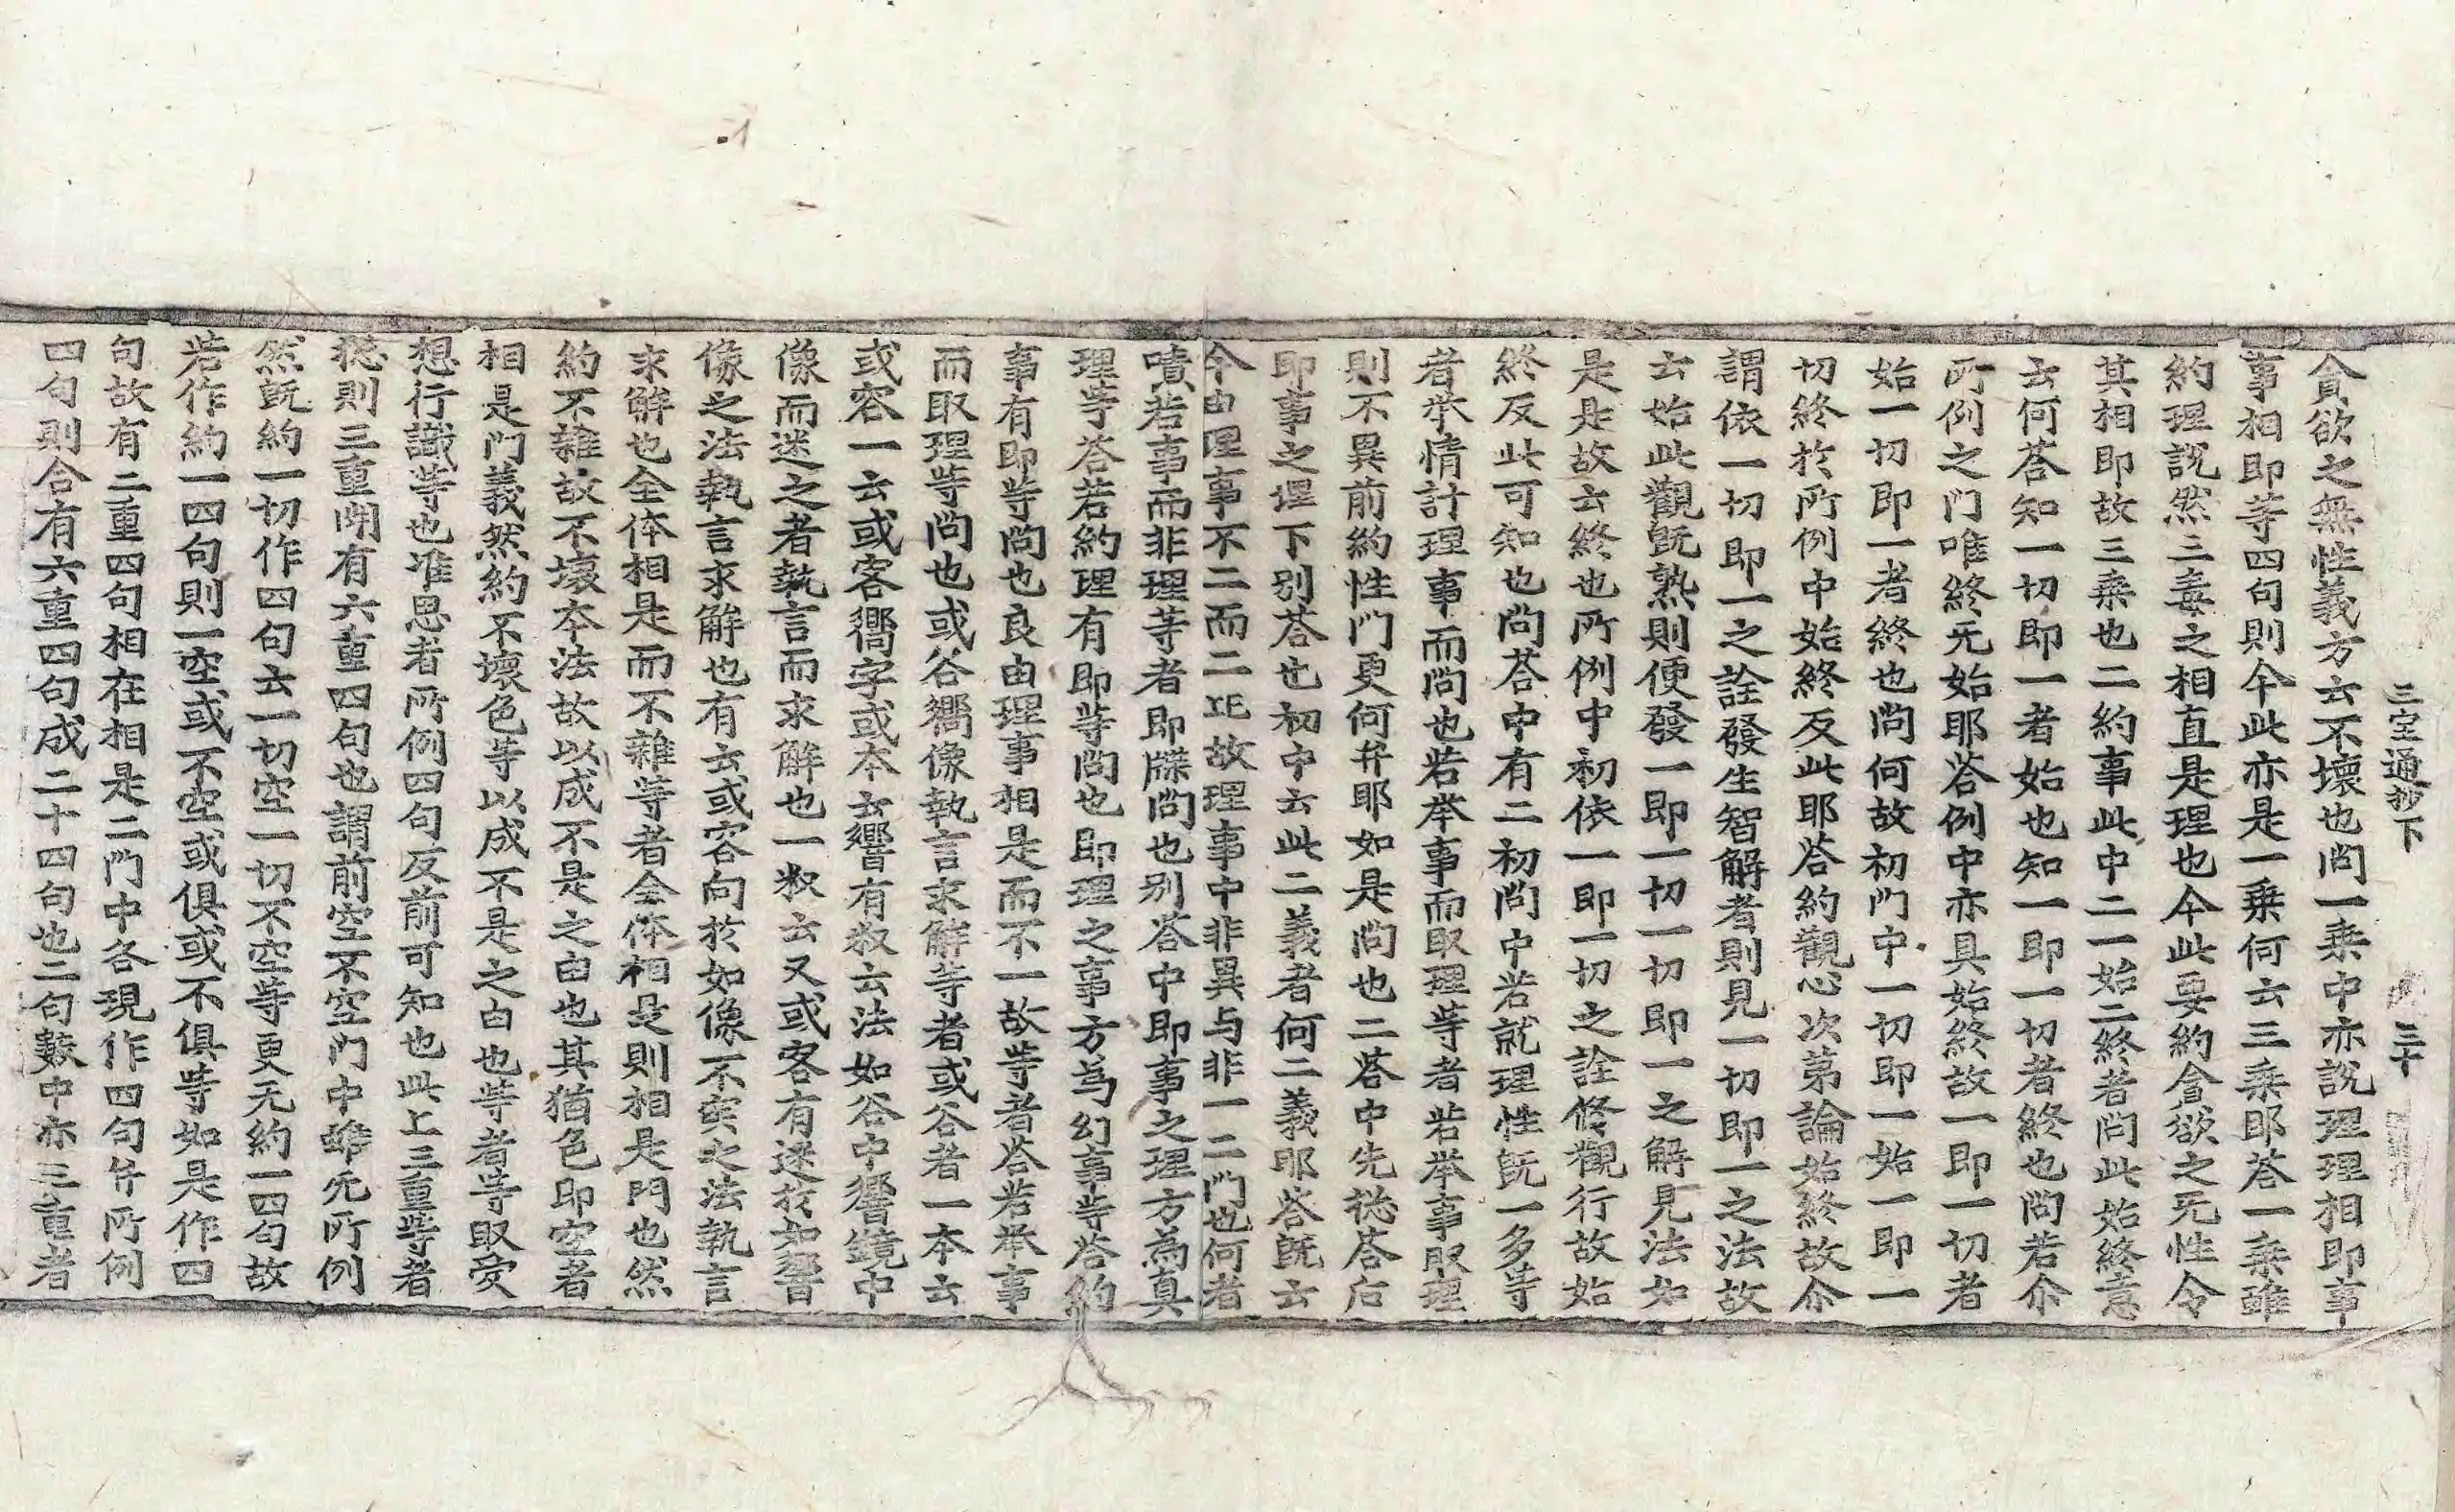 三宝通抄下 三十
貪欲之無性義方云不壞也問一乘中亦說理理相即事
事相即等四句則今此亦是一乘何云三乘耶荅一乘雖
約理說然三毒之相直是理也今此要約貪欲之无性令
其相即故三乘也二約事此中二一始二終者問此始終意
云何荅知一切即一者始也知一即一切者終也問若尒
所例之门唯終无始耶荅例中亦具始終故一即一切者
始一切即一者終也問何故初门中一切即一始一即一
切終於所例中始終反此耶荅約觀心次第論始終故尒
謂依一切即一之詮發生智解者則見一切即一之法故
云始此觀旣熟則便發一即一切一切即一之解見法如
是是故云終也所例中初依一即一切之詮修觀行故始
終反此可知也問荅中有二初問中若就理性旣一多等
者举情計理事而問也若举事而取理等者若举事取理
則不異前約性门更何并耶如是問也二荅中先揔荅后
即事之理下別荅也初中云此二義者何二義耶荅旣云
今由理事不二而二正故理事中非異与非一二门也何者
嘖若事而非理等者即牒問也別荅中即事之理方為真
理等荅若約理有即等問也即理之事方為幻事等荅約
事有即等問也良由理事相是而不一故等者荅若举事
而取理等問也或谷嚮像執言求解等者或谷者一本云
或容一云或客嚮字或本云響有叔云法如谷中響鏡中
像而迷之者執言而求解也一叔云又或客有迷於如響
像之法執言求解也有云或容向於如像不实之法執言
求解也全体相是而不雜等者全体相是則相是门也然
約不雜故不壞本法故以成不是之由也其猶色即空者
相是门義然約不壞色等以成不是之由也等者等取受
想行識等也准思者所例四句反前可知也此上三重等者
揔則三重開有六重四句也謂前空不空门中雖无所例
然旣約一切作四句云一切空一切不空等更无約一四句故
若作約一四句則一空或不空或俱或不俱等如是作四
句故有二重四句相在相是二门中各現作四句并所例
四句則合有六重四句成二十四句也二句數中亦三重者